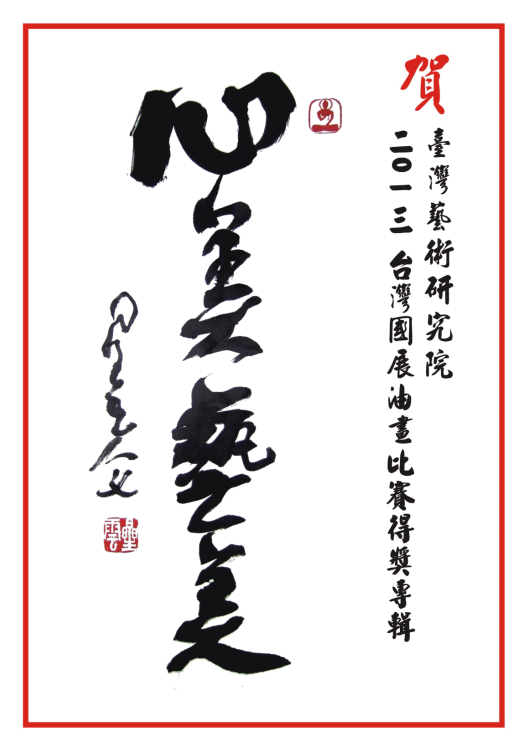 賀
臺灣藝術研究院
二〇一三台灣國展油畫比賽得獎專輯
心美藝美
星雲